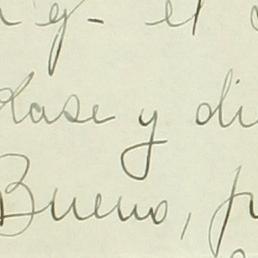 y - el
clase y di
Bueno, p